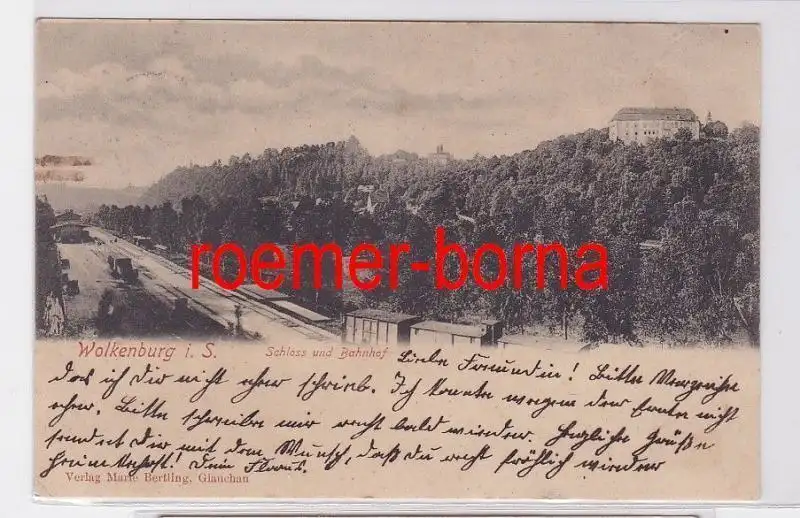 roemer-borna
Wolkenburg i. S. Schloss und Bahnhof
Liebe Freundin! Bitte Verzeihe
das ich Dir nicht eher schrieb. Ich konnte wegen der Ernte nicht
eher. Bitte schreibe mir recht bald wieder. Herzliche Grüße
sendet Dir mit dem Wunsch, daß du recht fröhlich wieder
heimkehrst! Dein
Verlag Marie Bertling, Glauchau